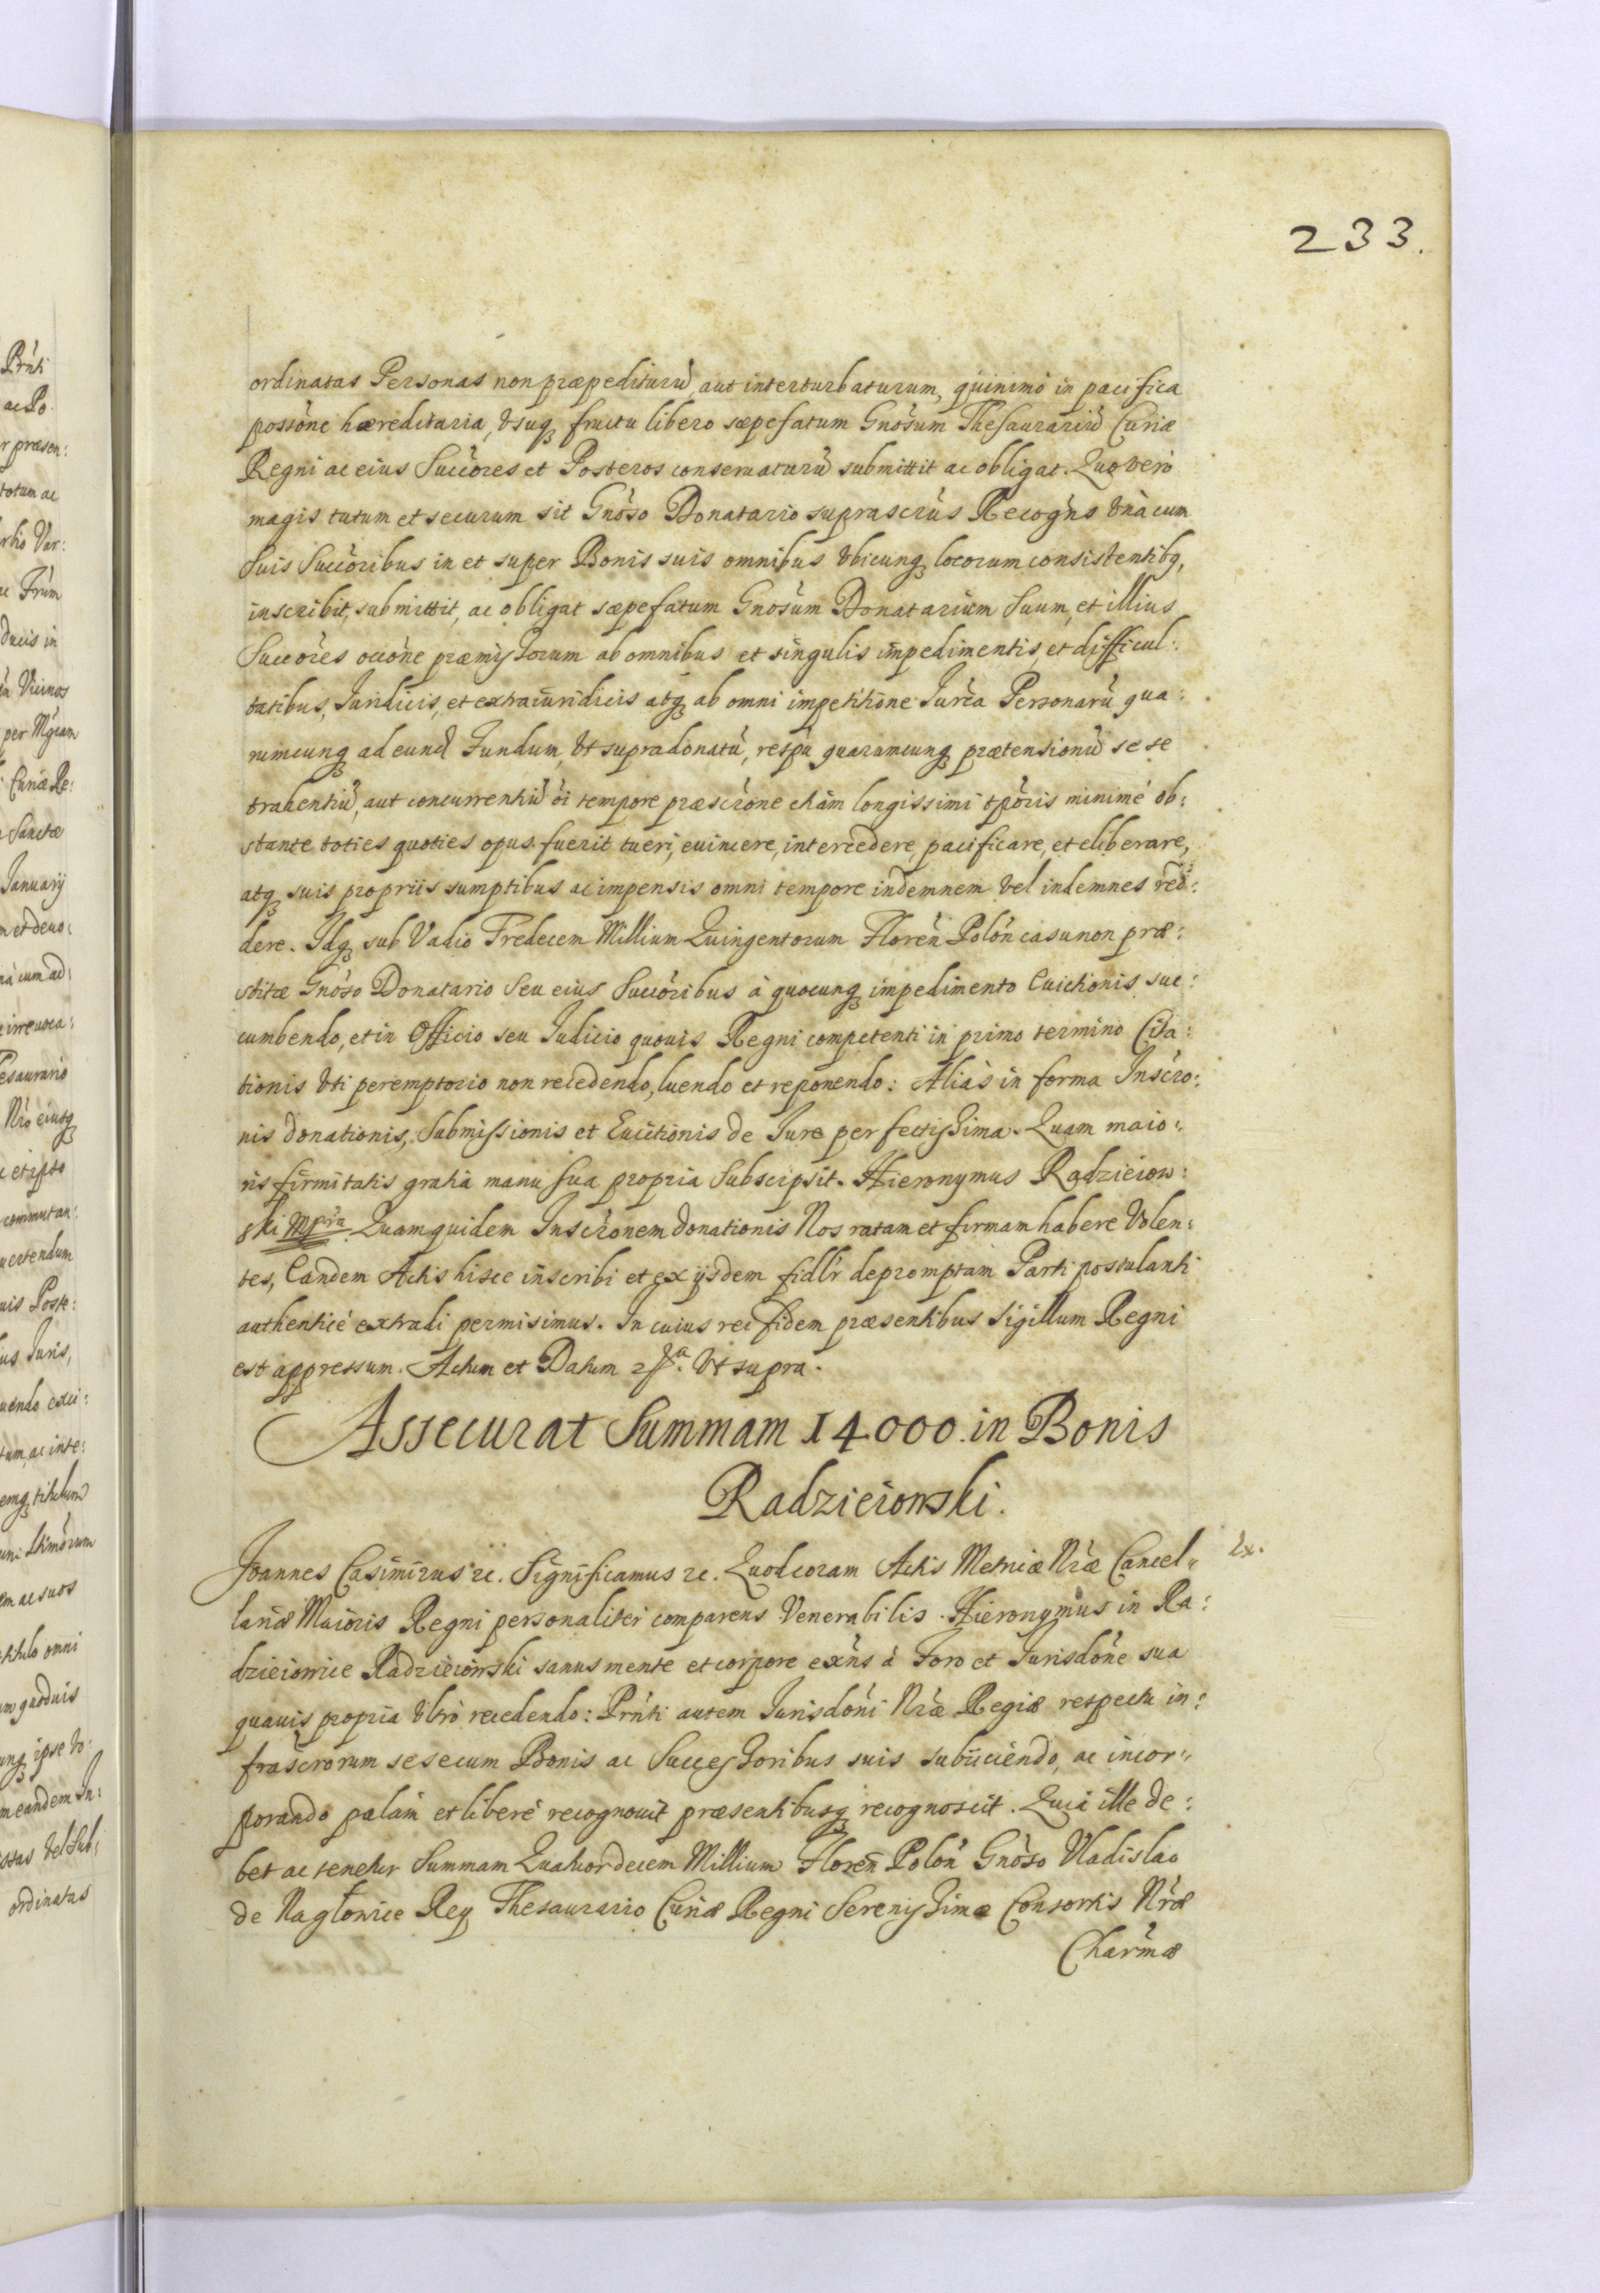 233.
ordinatas Personas non præpediturũ aut interturbaturum, quinimò in pacifica
possõne hæreditaria, vsuq3 fructu libero sæpefatum Gnõsum Thesaurariũ Curiæ
Regni ac eius Succõres et Posteros conseruaturũ submittit ac obligat. Quo verò
magis tutum et securum sit Gnõso Donatario suprascrũs Recogñs vnà cum
Suis Succõribus in et super Bonis suis omnibus vbicunq3 locorum consistentibq,
inscribit, submittit, ac obligat sæpefatum Gnõsum Donatarium Suum, et illius
Succõres occõne præmissorum ab omnibus et singulis impedimentis, et difficul:
tatibus, Juridicis, et extraiuridicis atq3 ab omni impetitione Jurẽa Personarũ qua:
rumcunq3 ad eund Fundum, vt supra donatũ, respũ quarumcunq3 prætensionũ se se
trahentiũ, aut concurrentiũ õi tempore præscrõne etiãm longissimi tpõris minimè ob:
stante toties quoties opus fuerit tueri, euincere, intercedere, pacificare, et eliberare,
atq3 suis propriis sumptibus ac impensis omni tempore indemnem vel indemnes red:
dere. Idq3 sub Vadio Tredecem Millium Quingentorum Floreñ Poloñ casu non præ:
stitæ Gnõso Donatario seu eius Succõribus à quocunq3 impedimento Euictionis suc:
cumbendo, et in Officio seu Judicio quouis Regni competenti in primo termino Cita:
tionis vti peremptorio non recedendo, luendo et reponendo: Aliàs in forma Inscrõ:
nis donationis, Submissionis et Euictionis de Jure perfectissima. Quam maio:
ris firmitatis gratia manu sua propria Subscripsit. Hieronymus Radzieiow:
ski Mprã. Quamquidem Inscrõnem donationis Nos ratam et firmam habere Volen:
tes, Eandem Actis hisce inscribi et ex ijsdem fidlr depromptam Parti postulanti
authenticè extradi permisimus. In cuius rei fidem præsentibus Sigillum Regni
est appressum. Actum et Datum vt supra.
Assecurat Summam 14000. in Bonis
Radzieiowski.
Joannes Casimirus rc. Significamus rc. Quod coram Actis Metricæ Nræ Cancel:
Ex.
lariæ Maioris Regni personaliter comparens Venerabilis Hieronymus in Ra:
dzieiowice Radzieiowski sanus mente et corpore exñs à Foro et Jurisdõne sua
quauis propria vltrò recedendo: Prñti autem Jurisdõni Nræ Regiæ respectu in:
frascrorum se se cum Bonis ac Successoribus suis subiiciendo, ac incor:
porando palàm et liberè recognouit præsentibusq3 recognoscit. Quia ille de:
bet ac tenetur Summam Quatuordecem Millium Floreñ Poloñ Gnõso Vladislao
de Nagłowice Rey Thesaurario Curiæ Regni Serenissimæ Consortis Nræ
Charmæ